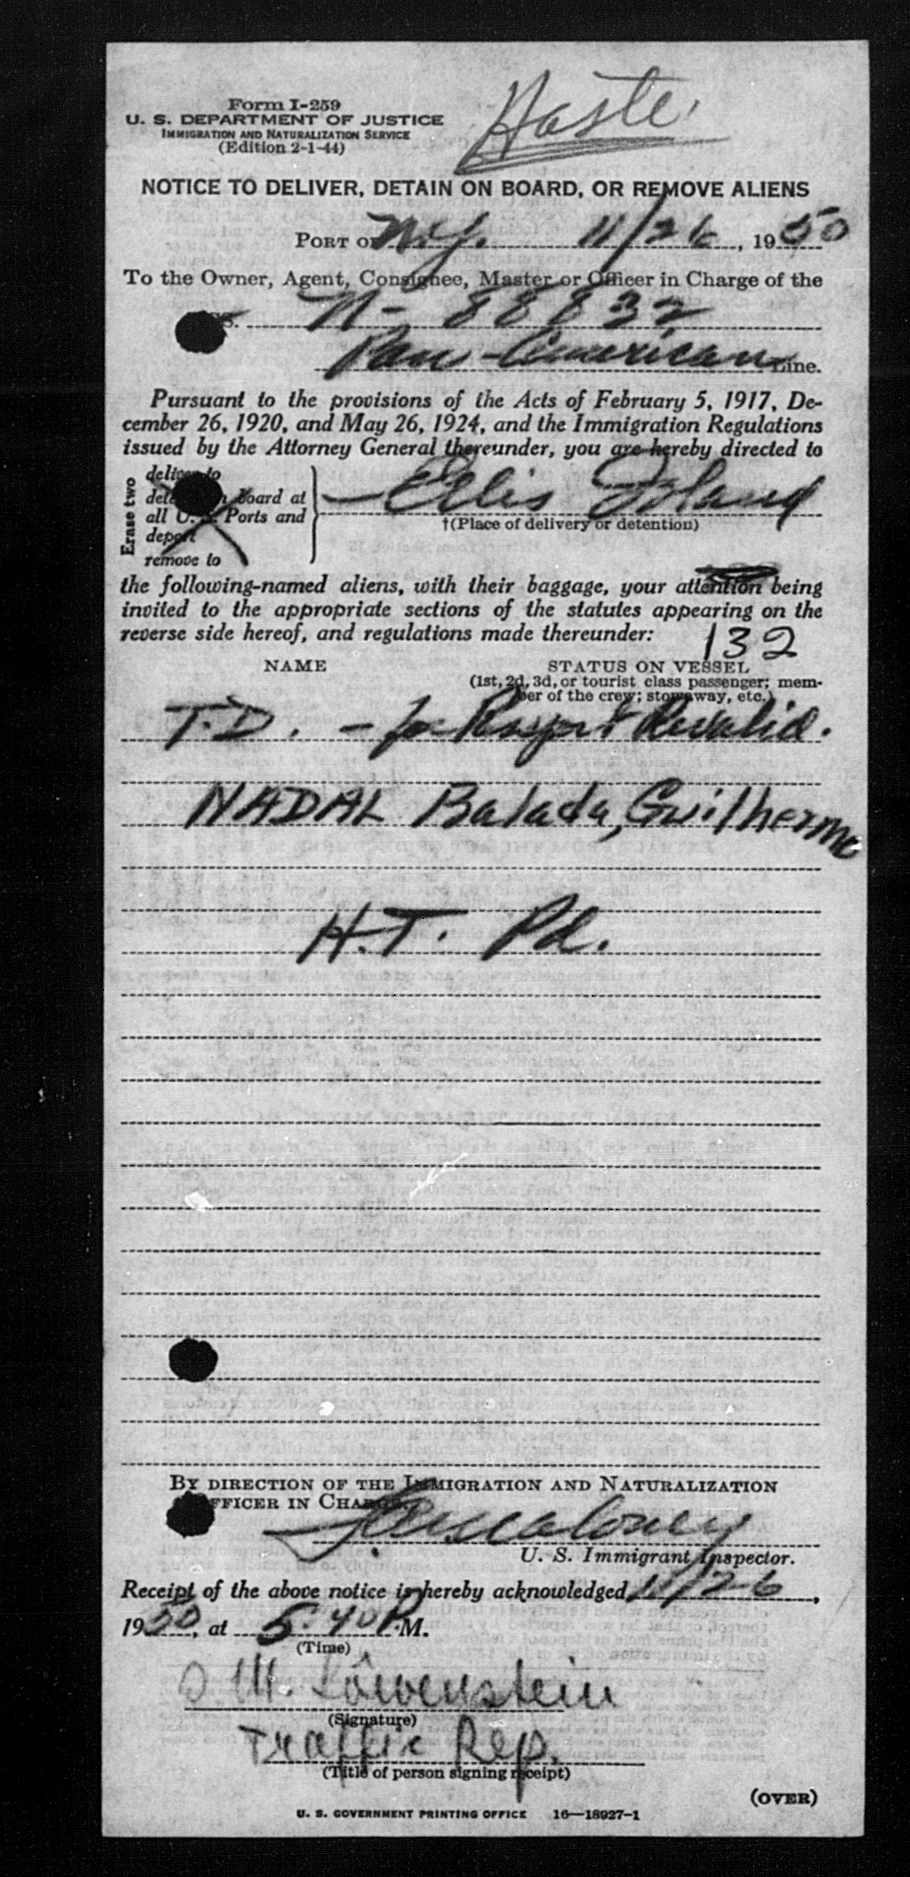 Haste
Form I-259
U. S. DEPARTMENT OF JUSTICE
IMMIGRATION AND NATURALIZATION SERVICE
(Edition 2-1-44)
NOTICE TO DELIVER, DETAIN ON BOARD, OR REMOVE ALIENS
PORT OF N.Y. 11/26, 1950
To the Owner, Agent, Consignee, Master or Officer in Charge of the
N- 88832
Pan-American Line.
Pursuant to the provisions of the Acts of February 5, 1917, De-
cember 26, 1920, and May 26, 1924, and the Immigration Regulations
issued by the Attorney General thereunder, you are hereby directed to
Erase two
deliver to
board at
all U. S. Ports and
deport
remove to
Ellis Island
†(Place of delivery or detention)
the following-named aliens, with their baggage, your attention being
invited to the appropriate sections of the statutes appearing on the
reverse side hereof, and regulations made thereunder:
132
NAME STATUS ON VESSEL
(1st, 2d, 3d, or tourist class passenger; mem-
ber of the crew; stowaway, etc.)
T.D. - for Passport Revalid.
NADAL Balada, Guilhermo
H.T. Pd.
BY DIRECTION OF THE IMMIGRATION AND NATURALIZATION
OFFICER IN CHARGE
Maloney
U. S. Immigrant Inspector.
Receipt of the above notice is hereby acknowledged 11/26,
1950, at 5:40 P.M.
(Time)
Löwenstein
(Signature)
Traffic Rep.
(Title of person signing receipt)
(OVER)
U. S. GOVERNMENT PRINTING OFFICE 16—18927-1